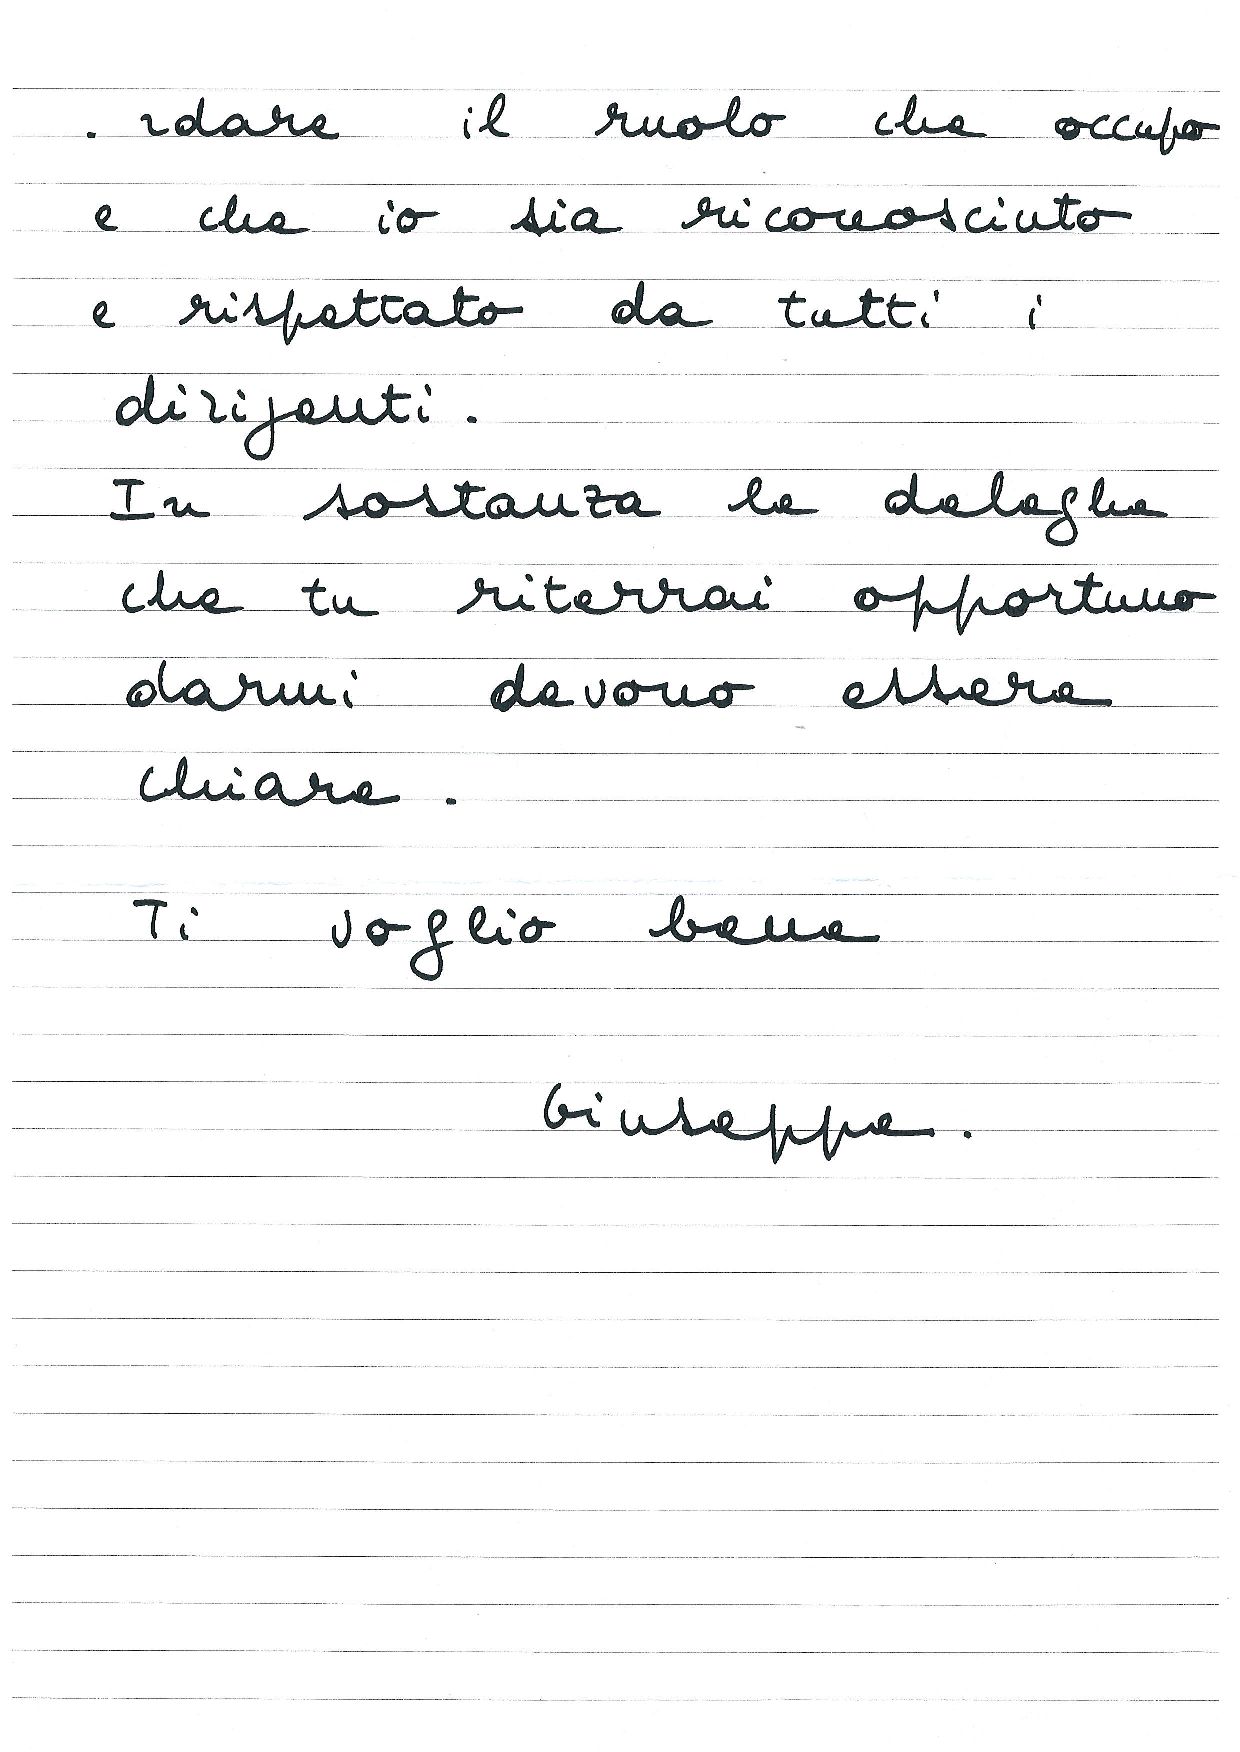 . rdare il ruolo che occupo
e che io sia riconosciuto
e rispettato da tutti i
dirigenti.
In sostanza le deleghe
che tu riterrai opportuno
darmi devono essere
chiare.
Ti voglio bene
Giuseppe.